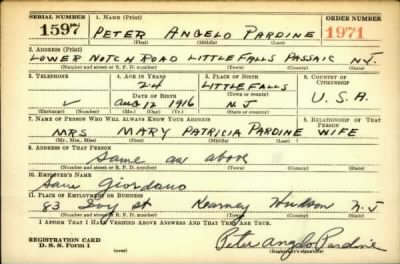 SERIAL NUMBER 1. NAME (Print) ORDER NUMBER
1597 PETER ANGELO PARDINE 1971
(First) (Middle) (Last)
2. ADDRESS (Print)
LOWER NOTCH ROAD LITTLE FALLS PASSAIC N.J.
(Number and street or R. F. D. number) (Town) (County) (State)
3. TELEPHONE 4. AGE IN YEARS 5. PLACE OF BIRTH 6. COUNTRY OF CITIZENSHIP
24 LITTLE FALLS
DATE OF BIRTH (Town or county) U.S.A.
Aug 12 1916 N J
(Exchange) (Number) (Mo.) (Day) (Yr.) (State or country)
7. NAME OF PERSON WHO WILL ALWAYS KNOW YOUR ADDRESS 8. RELATIONSHIP OF THAT PERSON
MRS MARY PATRICIA PARDINE WIFE
(Mr., Mrs., Miss) (First) (Middle) (Last)
9. ADDRESS OF THAT PERSON
Same as above
(Number and street or R. F. D. number) (Town) (County) (State)
10. EMPLOYER'S NAME
Sam Giordano
11. PLACE OF EMPLOYMENT OR BUSINESS
83 Ivy St Kearney Hudson N.J
(Number and street or R. F. D. number) (Town) (County) (State)
I AFFIRM THAT I HAVE VERIFIED ABOVE ANSWERS AND THAT THEY ARE TRUE.
REGISTRATION CARD
D. S. S. Form 1 (over) Peter Angelo Pardine
(Registrant's signature)